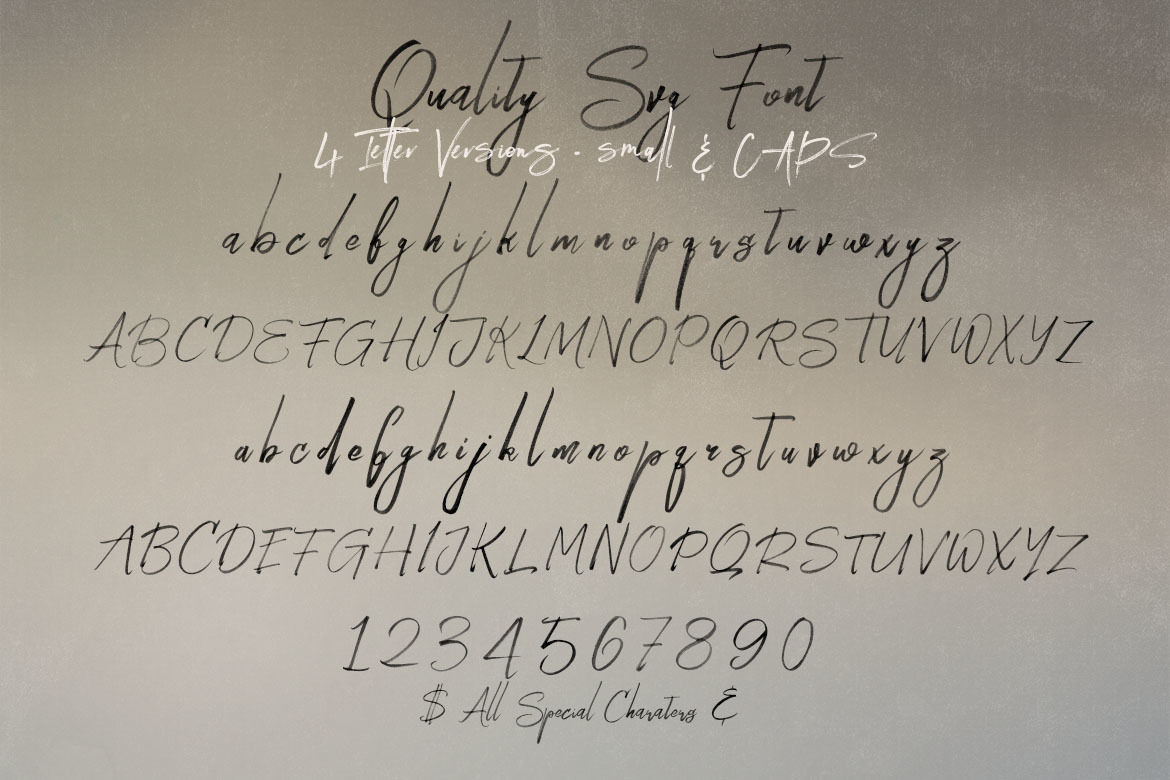 Quality Svg Font
4 letter Versions - small & CAPS
a b c d e f g h i j k l m n o p q r s t u v w x y z
A B C D E F G H I J K L M N O P Q R S T U V W X Y Z
a b c d e f g h i j k l m n o p q r s t u v w x y z
A B C D E F G H I J K L M N O P Q R S T U V W X Y Z
1 2 3 4 5 6 7 8 9 0
$ All Special Charaters &